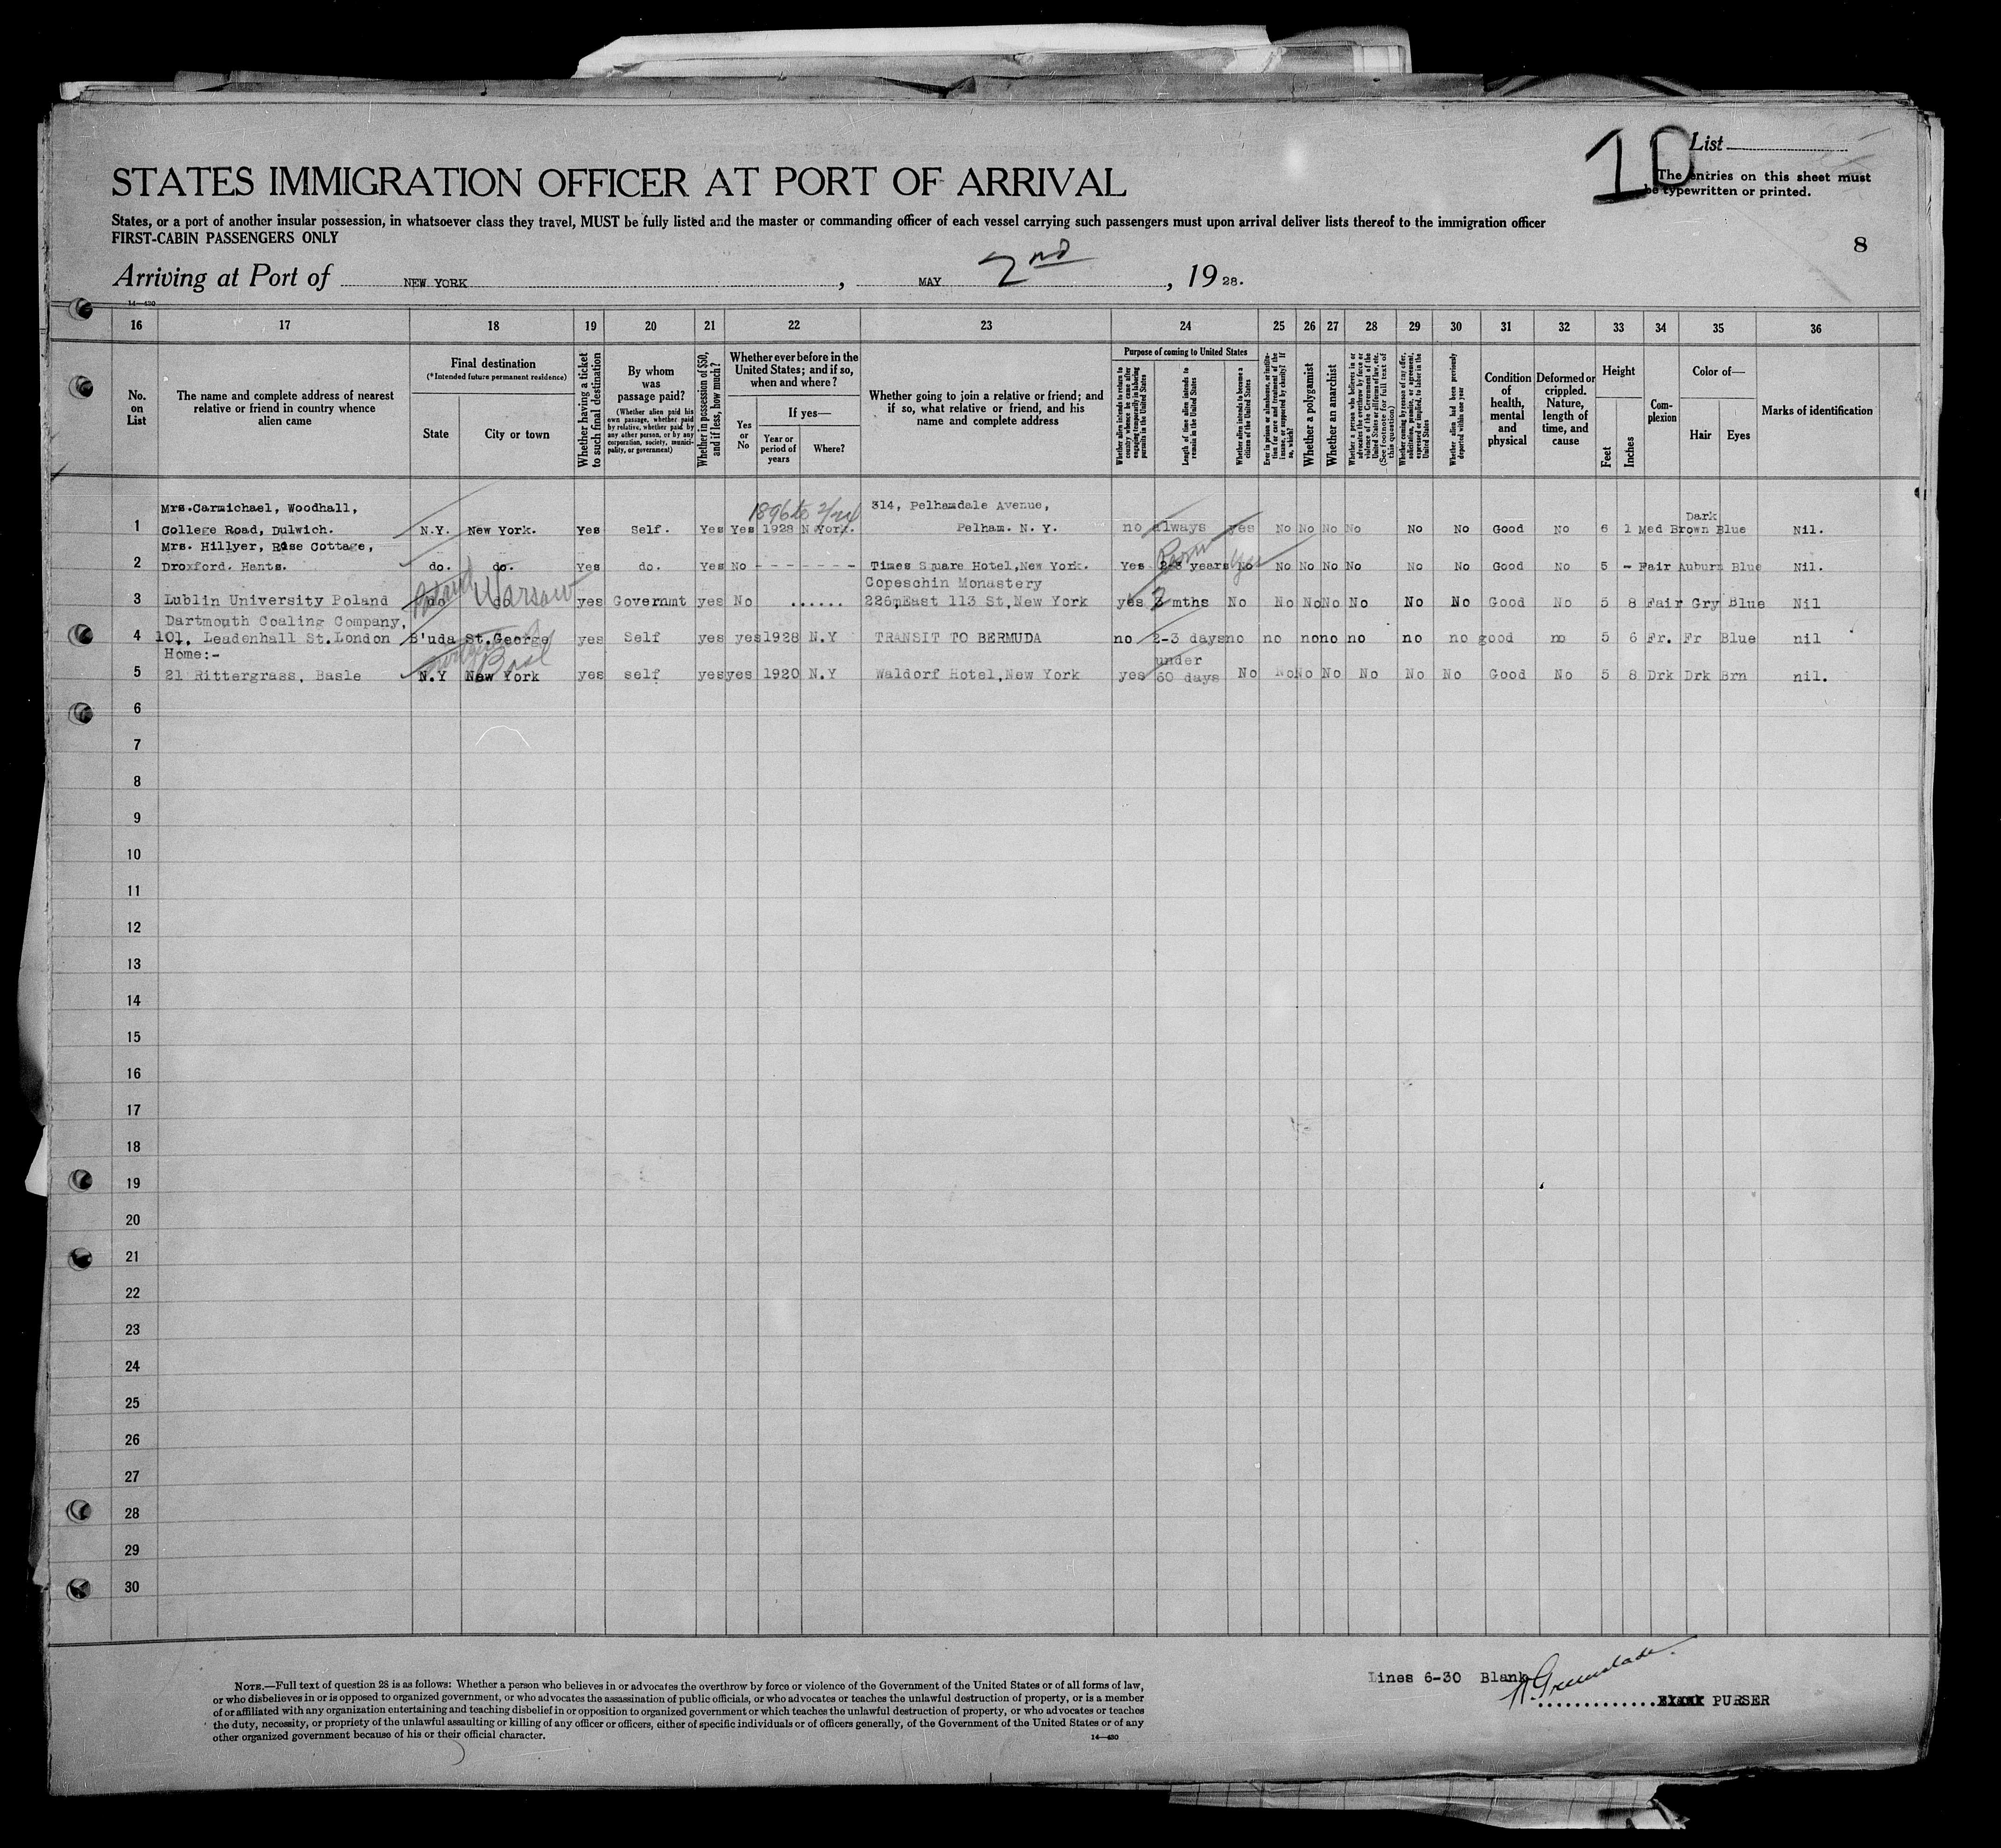 10
List
The entries on this sheet must
be typewritten or printed.
STATES IMMIGRATION OFFICER AT PORT OF ARRIVAL
States, or a port of another insular possession, in whatsoever class they travel, MUST be fully listed and the master or commanding officer of each vessel carrying such passengers must upon arrival deliver lists thereof to the immigration officer
FIRST-CABIN PASSENGERS ONLY
8
Arriving at Port of NEW YORK, MAY 2nd, 1928.
14—430
16 17 18 19 20 21 22 23 24 25 26 27 28 29 30 31 32 33 34 35 36
No. on List
The name and complete address of nearest relative or friend in country whence alien came
Final destination
(*Intended future permanent residence)
State
City or town
Whether having a ticket to such final destination
By whom was passage paid?
(Whether alien paid his own passage, whether paid by relative, whether paid by any other person, or by any corporation, society, municipality, or government)
Whether in possession of $50, and if less, how much?
Whether ever before in the United States; and if so, when and where?
Yes or No
If yes—
Year or period of years
Where?
Whether going to join a relative or friend; and if so, what relative or friend, and his name and complete address
Purpose of coming to United States
Whether alien intends to return to country whence he came after engaging temporarily in laboring pursuits in the United States
Length of time alien intends to remain in the United States
Whether alien intends to become a citizen of the United States
Ever in prison or almshouse, or institution for care and treatment of the insane, or supported by charity? If so, which?
Whether a polygamist
Whether an anarchist
Whether a person who believes in or advocates the overthrow by force or violence of the Government of the United States or all forms of law, etc. (See footnote for full text of this question)
Whether coming by reason of any offer, solicitation, promise, or agreement, expressed or implied, to labor in the United States
Whether alien had been previously deported within one year
Condition of health, mental and physical
Deformed or crippled. Nature, length of time, and cause
Height
Feet
Inches
Complexion
Color of—
Hair
Eyes
Marks of identification
Mrs.Carmichael, Woodhall, 1896 to 314, Pelhamdale Avenue, Dark
1 College Road, Dulwich. N.Y. New York. Yes Self. Yes Yes 1928 N York. Pelham. N. Y. no always yes No No No No No No Good No 6 1 Med Brown Blue Nil.
Mrs. Hillyer, Rose Cottage, Perm
2 Droxford. Hants. do. do. Yes do. Yes No - - - - - - Times Square Hotel,New York. Yes 2-3 years No Yes No No No No No No Good No 5 - Fair Auburn Blue Nil.
Poland Warsaw Copeschin Monastery
3 Lublin University Poland do do yes Governmt yes No ...... 226 East 113 St,New York yes 2 mths No No No No No No No Good No 5 8 Fair Gry Blue Nil
Dartmouth Coaling Company,
4 101, Leadenhall St.London B'uda St.George yes Self yes yes 1928 N.Y TRANSIT TO BERMUDA no 2-3 days no no no no no no no good no 5 6 Fr. Fr Blue nil
Home:- Basl under
5 21 Rittergrass, Basle N.Y New York yes self yes yes 1920 N.Y Waldorf Hotel,New York yes 60 days No No No No No No No Good No 5 8 Drk Drk Brn nil.
6
7
8
9
10
11
12
13
14
15
16
17
18
19
20
21
22
23
24
25
26
27
28
29
30
Lines 6-30 Blank
PURSER
NOTE.—Full text of question 28 is as follows: Whether a person who believes in or advocates the overthrow by force or violence of the Government of the United States or of all forms of law,
or who disbelieves in or is opposed to organized government, or who advocates the assassination of public officials, or who advocates or teaches the unlawful destruction of property, or is a member
of or affiliated with any organization entertaining and teaching disbelief in or opposition to organized government or which teaches the unlawful destruction of property, or who advocates or teaches
the duty, necessity, or propriety of the unlawful assaulting or killing of any officer or officers, either of specific individuals or of officers generally, of the Government of the United States or of any
other organized government because of his or their official character.
14—430